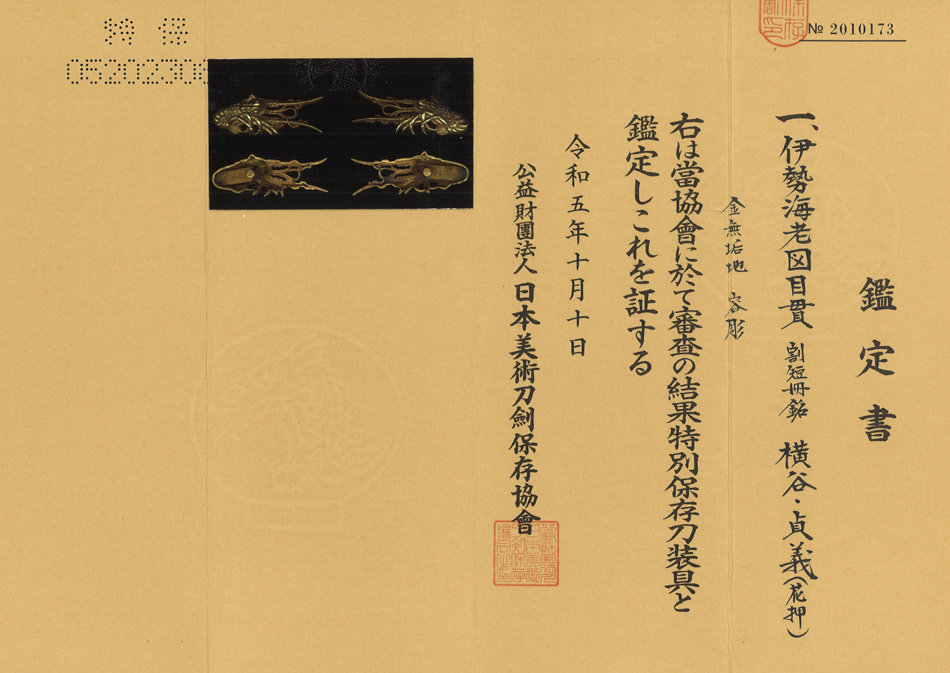 鑑定書
一、伊勢海老図目貫 割短冊銘 横谷・貞義(花押)
金無垢地 容彫
右は當協會に於て審査の結果特別保存刀装具と
鑑定しこれを証する
令和五年十月十日
公益財團法人 日本美術刀劍保存協會
№ 2010173
特保